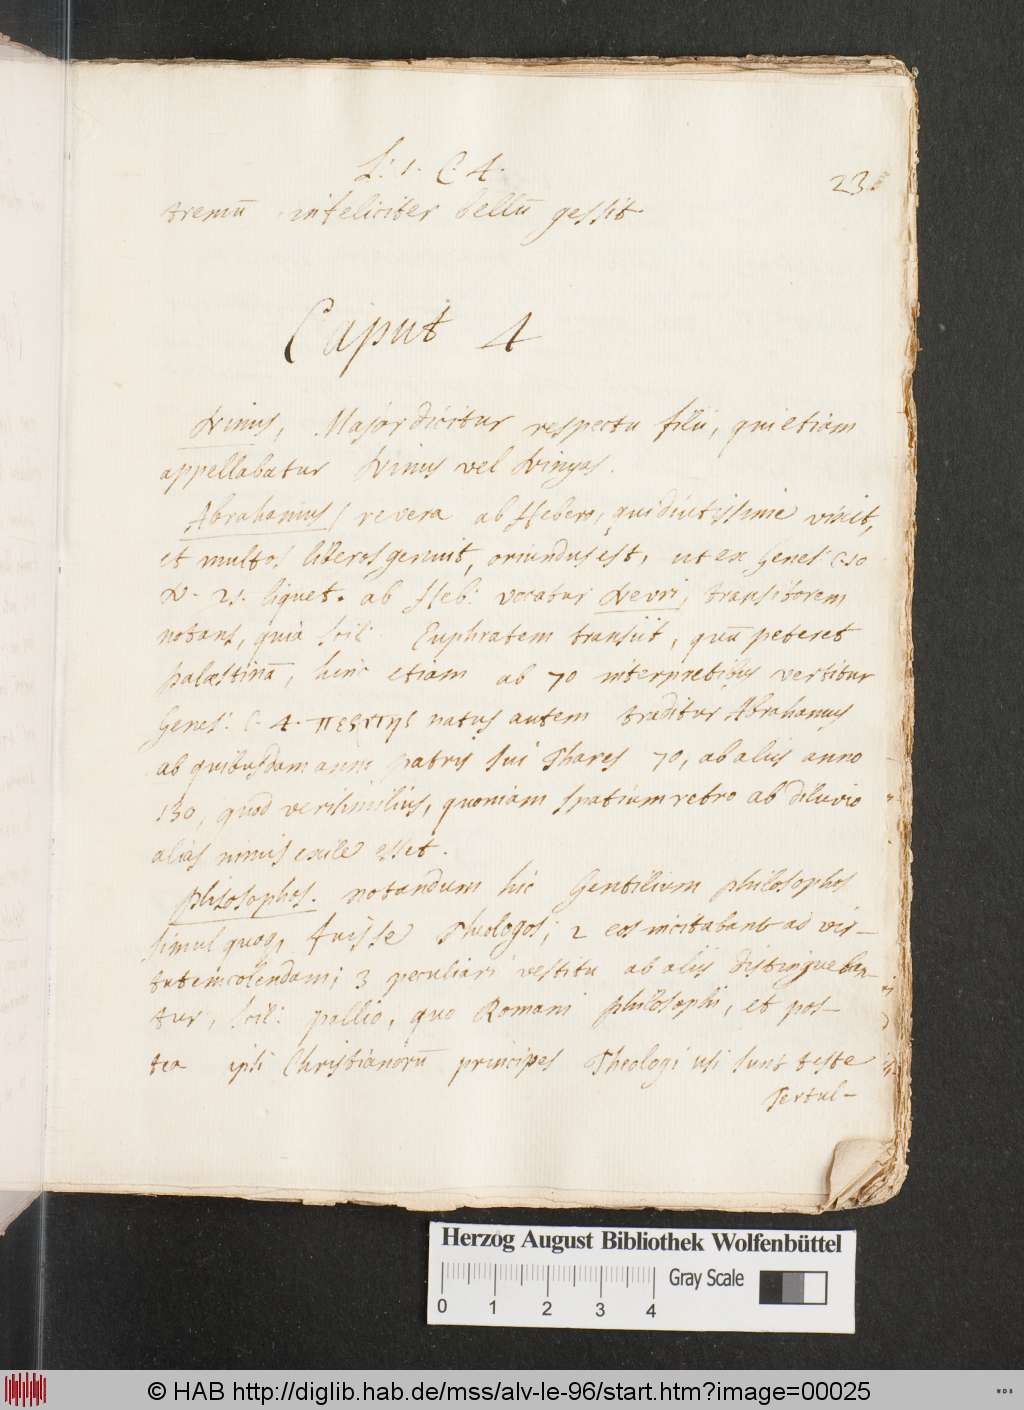 L: 1. C. 4.
23.
tremū infeliciter bellū gessit.
Caput 4
Ninus, Major dicitur respectu filii, qui etiam
appellabatur Ninus vel Ninyas.
Abrahamus revera ab Hebero, qui diutissime vixit,
et multos liberos genuit, oriundus est, ut ex Genes: c. 10
V. 21. liquet. ab Heb: vocatur transitorem
notans, quia scil: Euphratem transiit, quū peteret
palæstinā, hinc etiam ab 70 interpretibus vertitur
Genes: C. 4. natus autem traditur Abrahamus
ab quibusdam anni patris sui Thares 70, ab aliis anno
130, quod verisimilius, quoniam spatium retro ab diluvio
alias nimis exile esset.
Philosophos. notandum hic Gentilium philosophos
simul quoq, fuisse Theologos; 2 eos incitabant ad vir-
tutem colendam; 3 peculiari vestitu ab aliis distingueban-
tur, scil: pallio, quo Romani philosophi, et pos-
tea ipsi Christianorū principes Theologi usi sunt teste
Tertul-
Herzog August Bibliothek Wolfenbüttel
Gray Scale
0 1 2 3 4
© HAB http://diglib.hab.de/mss/alv-le-96/start.htm?image=00025